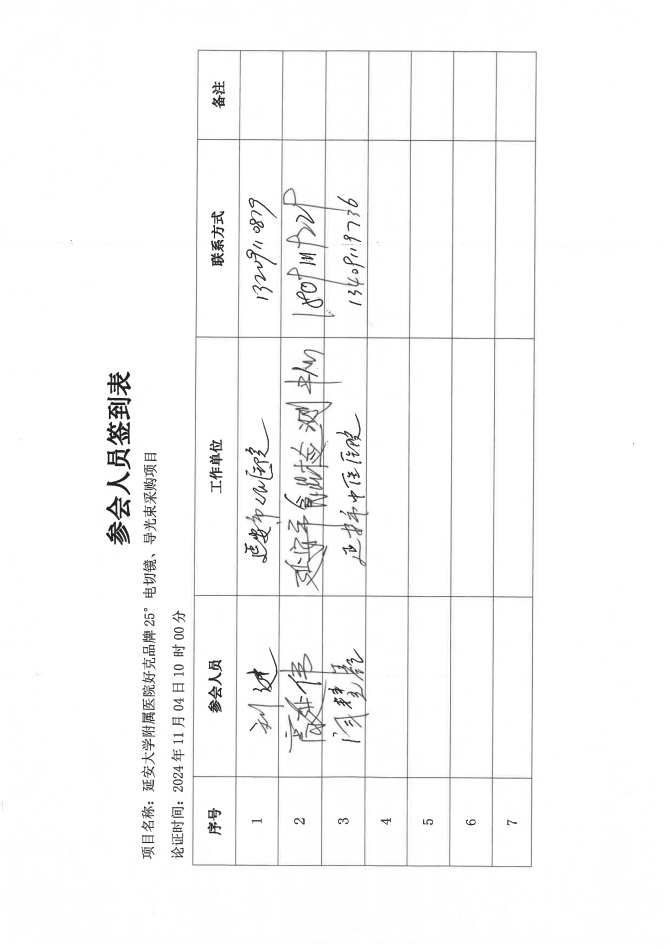 参会人员签到表
项目名称：延安大学附属医院好克品牌 25° 电切镜、导光束采购项目
论证时间：2024 年 11 月 04 日 10 时 00 分
序号 参会人员 工作单位 联系方式 备注
1 刘 延安市人民医院 13209110879
2 高延伟 延安市食品检测
3 延安市中医医院 13409119736
4
5
6
7